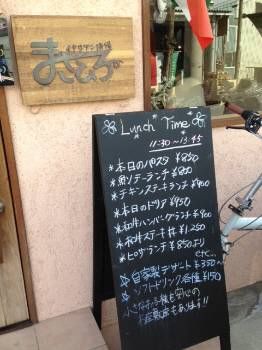 イタリアン酒場
まさひろ
Lunch Time
11:30~13:45
*本日のパスタ ¥850
*魚ソテーランチ ¥800
*チキンステーキランチ ¥900
*本日のドリア ¥950
*和牛ハンバーグランチ ¥900
*和牛ステーキ丼 ¥1,250
*ピザランチ ¥850より
etc...
☆自家製デザート ¥350
☆ソフトドリンク各種 ¥150
小さなお子様も安心の
お座敷席もあります!!